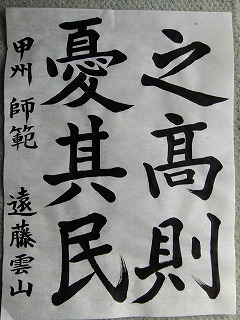 之髙則
憂其民
甲州 師範 遠藤雲山